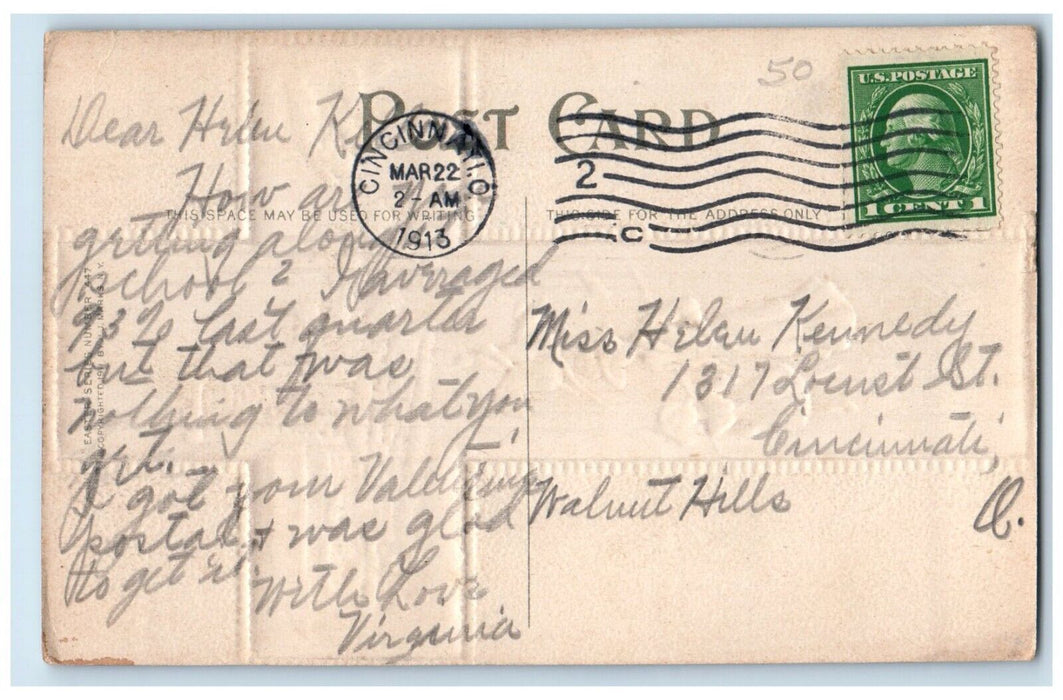 50
POST CARD
U.S. POSTAGE
1 CENT 1
CINCINNATI, O.
MAR 22
2 - AM
1913
2
C
THIS SPACE MAY BE USED FOR WRITING
THIS SIDE FOR THE ADDRESS ONLY
Dear Helen K
How are you
getting along
school? I averaged
93% last quarter
but that was
nothing to what you
get.
I got your Valentine
postal & was glad
to get it.
With Love
Virginia
Miss Helen Kennedy
1317 Locust St.
Cincinnati,
Walnut Hills
O.
EASTER SERIES NUMBER
COPYRIGHTED
N.Y.